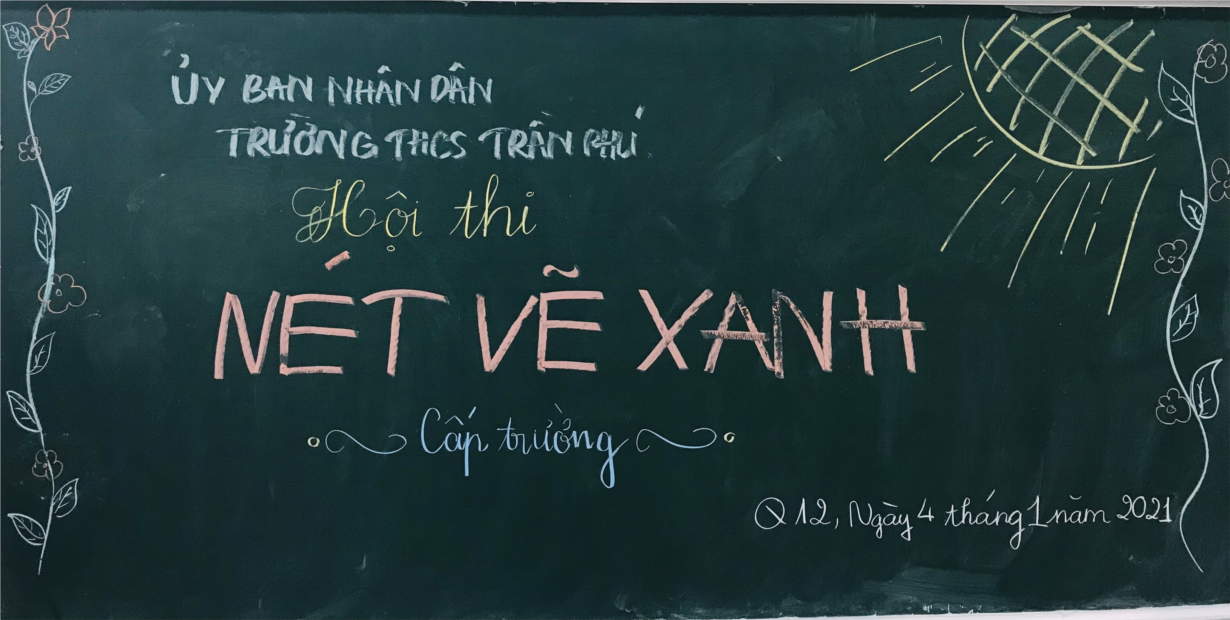 ỦY BAN NHÂN DÂN
TRƯỜNG THCS TRẦN PHÚ
Hội thi
NÉT VẼ XANH
Cấp trường
Q 12, Ngày 4 tháng 1 năm 2021